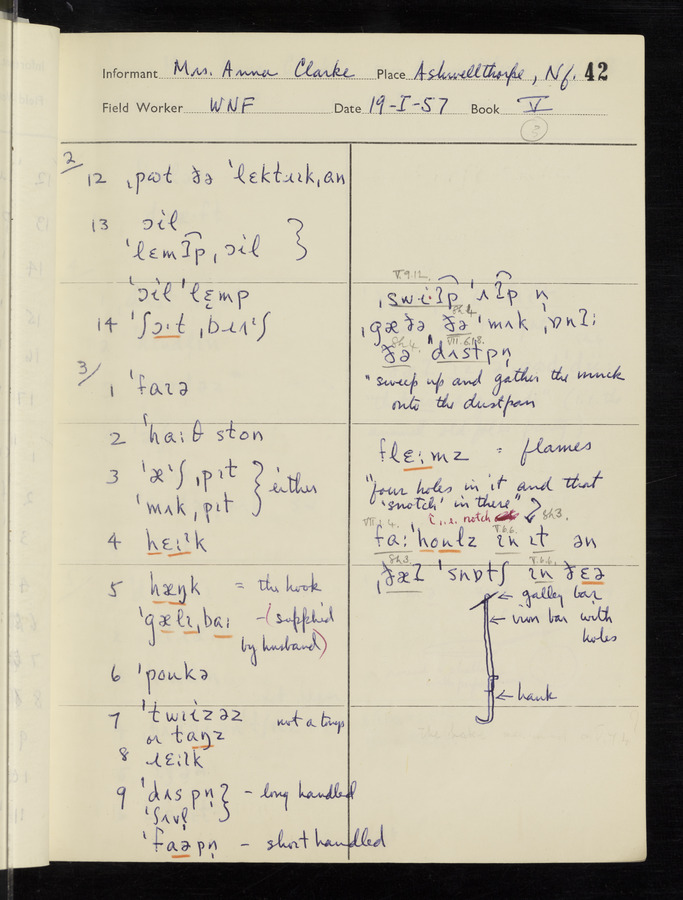 Informant Mrs. Anna Clarke Place Ashwellthorpe, Nf. 42
Field Worker WNF Date 19-I-57 Book V
3
2/
12 ˌpɷt ðə ˈlɛktɹɪkˌan
13 ɔil
ˈlɛmʔpˌɔil
ˈɔilˈlɛmp
14 ˈʃɔ.ɪtˌbɹɪˈʃ
3/
1 ˈfaɪə
2 ˈhaːθ ston
3 ˈæˈʃˌpɪt
ˈmʌkˌpɪt } either
4 hɛːˈk
5 hæŋk = the hook
ˈgælɪˌbaː - (supplied
by husband)
6 ˈpoukə
7 ˈtwiizəz not a tongs
or taŋz
8 ɹɛik
9 ˈdʌspn̩ } - long handled
ˈʃʌvl̩
ˈfaəpn̩ - short handled
V.9.12.
ˌswiːʔp ˈʌʔp n
sh.4.
ˌgæðə ðə ˈmʌk ˌɒnʔi
sh.4. VII.6.18.
ðə dʌstpn̩
"sweep up and gather the muck
onto the dustpan
flɛːmz = flames
"four holes in it and that
'snotch' in there"
i.e. notch sh3.
VII.1.4. V.6.6.
faːˈhoulz ɪn ɪt ən
sh.3. V.6.6.
ˌðæʔ ˈsnɒtʃ ɪn ðɛə
← galley bar
← iron bar with
holes
← hank